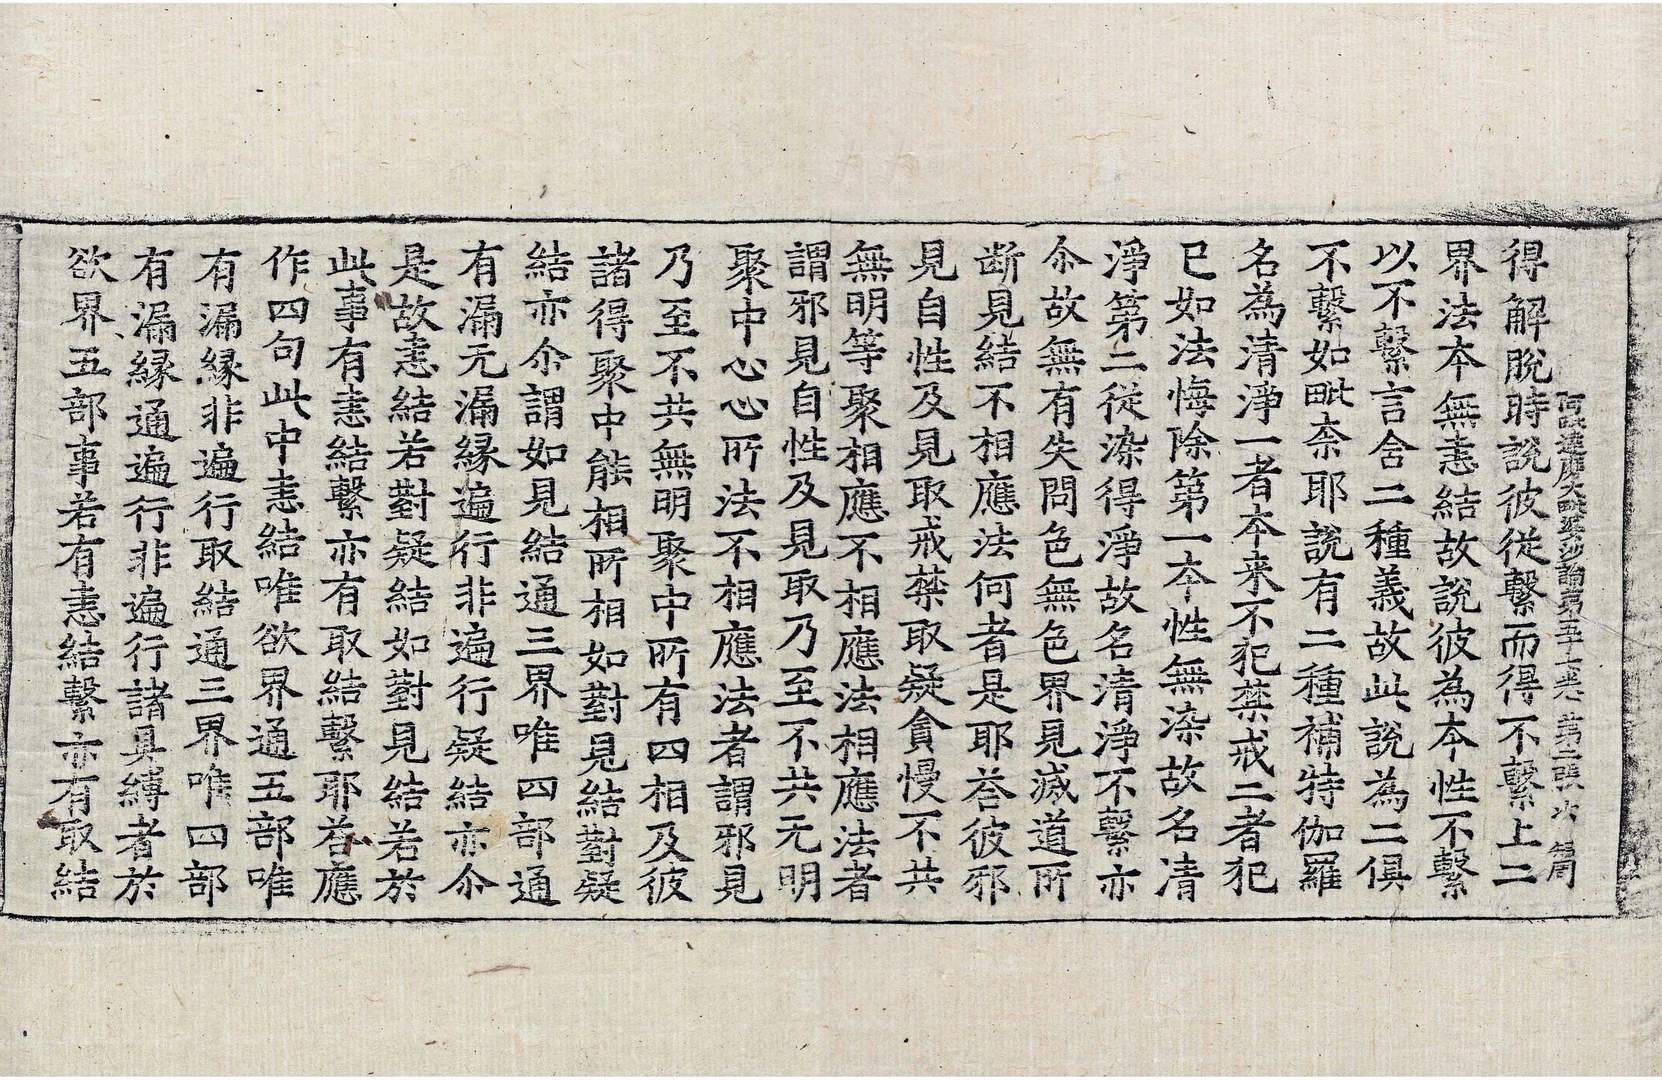 阿毗達磨大毗婆沙論第五十七卷 第三張
得解脫時說彼從繫而得不繫上二
界法本無恚結故說彼為本性不繫
以不繫言含二種義故此說為二俱
不繫如毗柰耶說有二種補特伽羅
名為清淨一者本来不犯禁戒二者犯
已如法悔除第一本性無染故名清
淨第二從染得淨故名清淨不繫亦
尒故無有失問色無色界見滅道所
断見結不相應法何者是耶荅彼邪
見自性及見取戒禁取疑貪慢不共
無明等聚相應不相應法相應法者
謂邪見自性及見取乃至不共无明
聚中心心所法不相應法者謂邪見
乃至不共無明聚中所有四相及彼
諸得聚中能相所相如對見結對疑
結亦尒謂如見結通三界唯四部通
有漏无漏緣遍行非遍行疑結亦尒
是故恚結若對疑結如對見結若於
此事有恚結繫亦有取結繫耶荅應
作四句此中恚結唯欲界通五部唯
有漏緣非遍行取結通三界唯四部
有漏緣通遍行非遍行諸具縛者於
欲界五部事若有恚結繫亦有取結